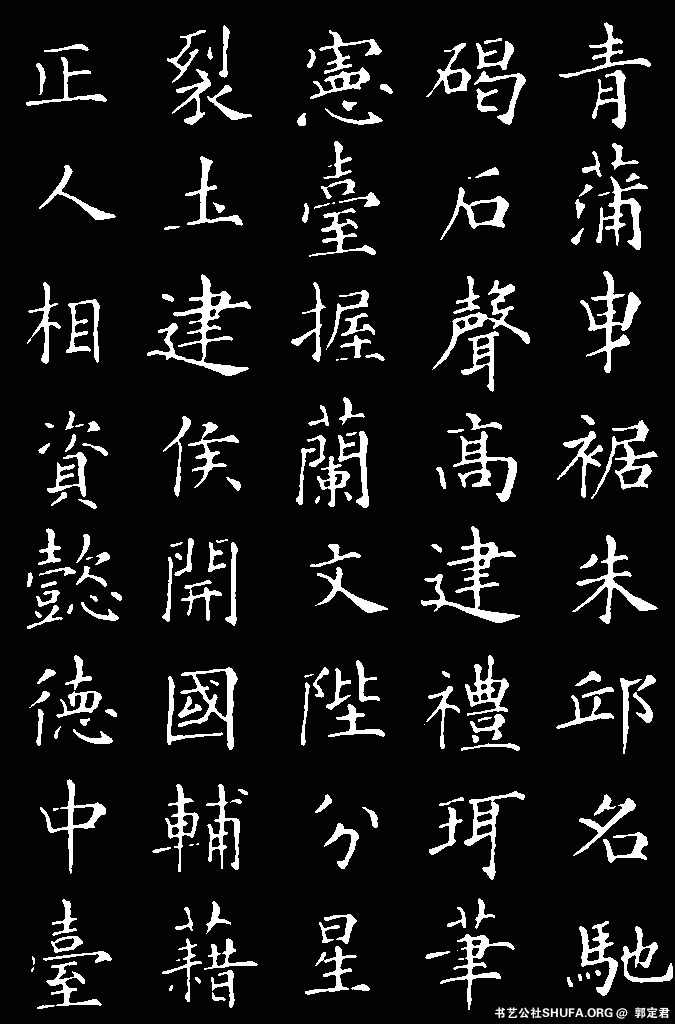 青蒲車裾朱邱名馳
碣石聲高建禮珥筆
憲臺握蘭文陛分星
裂土建侯開國輔藉
正人相資懿德中臺
书艺公社SHUFA.ORG @ 郭定君